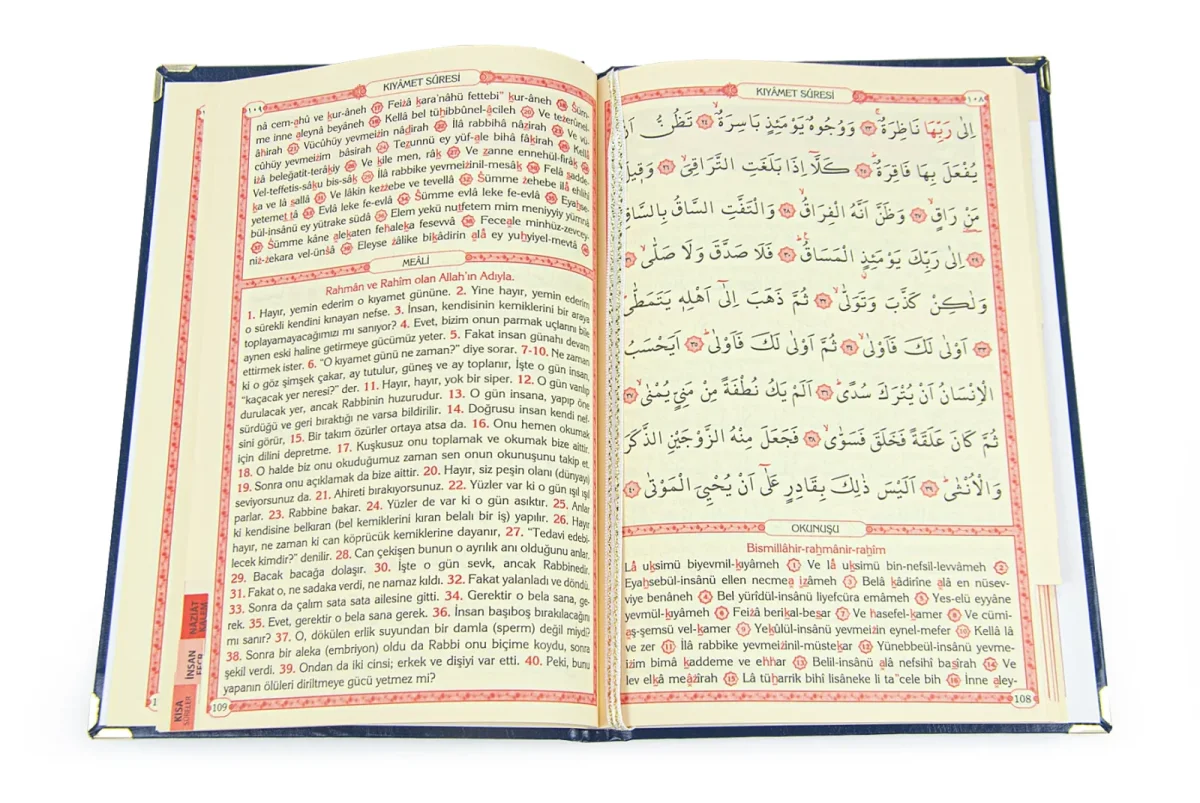 KIYÂMET SÛRESİ
١٠٨
اِلٰى رَبِّهَا نَاظِرَةٌۚ ﴿٢٣﴾ وَوُجُوهٌ يَوْمَئِذٍ بَاسِرَةٌۙ ﴿٢٤﴾ تَظُنُّ اَنْ
يُفْعَلَ بِهَا فَاقِرَةٌۜ ﴿٢٥﴾ كَلَّٓا اِذَا بَلَغَتِ التَّرَاقِيَۙ ﴿٢٦﴾ وَقٖيلَ
مَنْ رَاقٍۙ ﴿٢٧﴾ وَظَنَّ اَنَّهُ الْفِرَاقُۙ ﴿٢٨﴾ وَالْتَفَّتِ السَّاقُ بِالسَّاقِۙ
﴿٢٩﴾ اِلٰى رَبِّكَ يَوْمَئِذٍ الْمَسَاقُۜ ﴿٣٠﴾ فَلَا صَدَّقَ وَلَا صَلّٰىۙ ﴿٣١﴾
وَلٰكِنْ كَذَّبَ وَتَوَلّٰىۙ ﴿٣٢﴾ ثُمَّ ذَهَبَ اِلٰٓى اَهْلِهٖ يَتَمَطّٰىۜ
﴿٣٣﴾ اَوْلٰى لَكَ فَاَوْلٰىۙ ﴿٣٤﴾ ثُمَّ اَوْلٰى لَكَ فَاَوْلٰىۜ ﴿٣٥﴾ اَيَحْسَبُ
الْاِنْسَانُ اَنْ يُتْرَكَ سُدًىۜ ﴿٣٦﴾ اَلَمْ يَكُ نُطْفَةً مِنْ مَنِيٍّ يُمْنٰىۙ ﴿٣٧﴾
ثُمَّ كَانَ عَلَقَةً فَخَلَقَ فَسَوّٰىۙ ﴿٣٨﴾ فَجَعَلَ مِنْهُ الزَّوْجَيْنِ الذَّكَرَ
وَالْاُنْثٰىۜ ﴿٣٩﴾ اَلَيْسَ ذٰلِكَ بِقَادِرٍ عَلٰٓى اَنْ يُحْيِيَ الْمَوْتٰى ﴿٤٠﴾
OKUNUŞU
Bismillâhir-rahmânir-rahîm
Lâ uksimü biyevmil-kıyâmeh 1 Ve lâ uksimü bin-nefsil-levvâmeh 2
Eyahsebül-insânü ellen necmea izâmeh 3 Belâ kâdirîne alâ en nüsev-
viye benâneh 4 Bel yürîdül-insânü liyefcüra emâmeh 5 Yes-elü eyyâne
yevmül-kıyâmeh 6 Feizâ berikal-besar 7 Ve hasefel-kamer 8 Ve cümi-
aş-şemsü vel-kamer 9 Yekûlül-insânü yevmeizin eynel-mefer 10 Kellâ lâ
ve zer 11 İlâ rabbike yevmeizinil-müstekar 12 Yünebbeül-insânü yevme-
izim bimâ kaddeme ve ehhar 13 Belil-insânü alâ nefsihî basîrah 14 Ve
lev elkâ meâzîrah 15 Lâ tüharrik bihî lisâneke li ta'cele bih 16 İnne aley-
108
KIYÂMET SÛRESİ
١٠٩
nâ cem-ahû ve kur-âneh 17 Feizâ kara'nâhü fettebi” kur-âneh 18 Süm-
me inne aleynâ beyâneh 19 Kellâ bel tühibbûnel-âcileh 20 Ve tezerûnel-
âhirah 21 Vücûhüy yevmeizin nâdirah 22 İlâ rabbihâ nâzirah 23 Ve vü-
cûhüy yevmeizim bâsirah 24 Tezunnü ey yüf-ale bihâ fâkirah 25 Kellâ
izâ beleğatit-terâkiy 26 Ve kîle men, râk 27 Ve zanne ennehül-firâk 28
Vel-teffetis-sâku bis-sâk 29 İlâ rabbike yevmeizinil-mesâk 30 Felâ sadde-
ka ve lâ sallâ 31 Ve lâkin kezzebe ve tevellâ 32 Sümme zehebe ilâ ehlihî
yetemet tâ 33 Evlâ leke fe-evlâ 34 Sümme evlâ leke fe-evlâ 35 Eyahse-
bül-insânü ey yütrake südâ 36 Elem yekü nutfetem mim meniyyiy yümnâ
37 Sümme kâne alekaten fehaleka fesevvâ 38 Feceale minhüz-zevcey-
niz-zekara vel-ünsâ 39 Eleyse zâlike bikâdirin alâ ey yuhyiyel-mevtâ 40
MEÂLİ
Rahmân ve Rahîm olan Allah'ın Adıyla.
1. Hayır, yemin ederim o kıyamet gününe. 2. Yine hayır, yemin ederim
o sürekli kendini kınayan nefse. 3. İnsan, kendisinin kemiklerini bir araya
toplayamayacağımızı mı sanıyor? 4. Evet, bizim onun parmak uçlarını bile
aynen eski haline getirmeye gücümüz yeter. 5. Fakat insan günahı devam
ettirmek ister. 6. “O kıyamet günü ne zaman?” diye sorar. 7-10. Ne zaman
ki o göz şimşek çakar, ay tutulur, güneş ve ay toplanır, İşte o gün insan,
“kaçacak yer neresi?” der. 11. Hayır, hayır, yok bir siper. 12. O gün varılıp
durulacak yer, ancak Rabbinin huzurudur. 13. O gün insana, yapıp öne
sürdüğü ve geri bıraktığı ne varsa bildirilir. 14. Doğrusu insan kendi nef-
sini görür, 15. Bir takım özürler ortaya atsa da. 16. Onu hemen okumak
için dilini depretme. 17. Kuşkusuz onu toplamak ve okumak bize aittir.
18. O halde biz onu okuduğumuz zaman sen onun okunuşunu takip et.
19. Sonra onu açıklamak da bize aittir. 20. Hayır, siz peşin olanı (dünyayı)
seviyorsunuz da. 21. Ahireti bırakıyorsunuz. 22. Yüzler var ki o gün ışıl ışıl
parlar. 23. Rabbine bakar. 24. Yüzler de var ki o gün asıktır. 25. Anlar
ki kendisine belkıran (bel kemiklerini kıran belalı bir iş) yapılır. 26. Hayır
hayır, ne zaman ki can köprücük kemiklerine dayanır, 27. “Tedavi edebi-
lecek kimdir?” denilir. 28. Can çekişen bunun o ayrılık anı olduğunu anlar.
29. Bacak bacağa dolaşır. 30. İşte o gün sevk, ancak Rabbinedir.
31. Fakat o, ne sadaka verdi, ne namaz kıldı. 32. Fakat yalanladı ve döndü.
33. Sonra da çalım sata sata ailesine gitti. 34. Gerektir o bela sana, ge-
rek. 35. Evet, gerektir o bela sana gerek. 36. İnsan başıboş bırakılacağını
mı sanır? 37. O, dökülen erlik suyundan bir damla (sperm) değil miydi?
38. Sonra bir aleka (embriyon) oldu da Rabbi onu biçime koydu, sonra
şekil verdi. 39. Ondan da iki cinsi; erkek ve dişiyi var etti. 40. Peki, bunu
yapanın ölüleri diriltmeye gücü yetmez mi?
109
NAZİAT
KALEM
İNSAN
FECR
KISA
SÛRELER